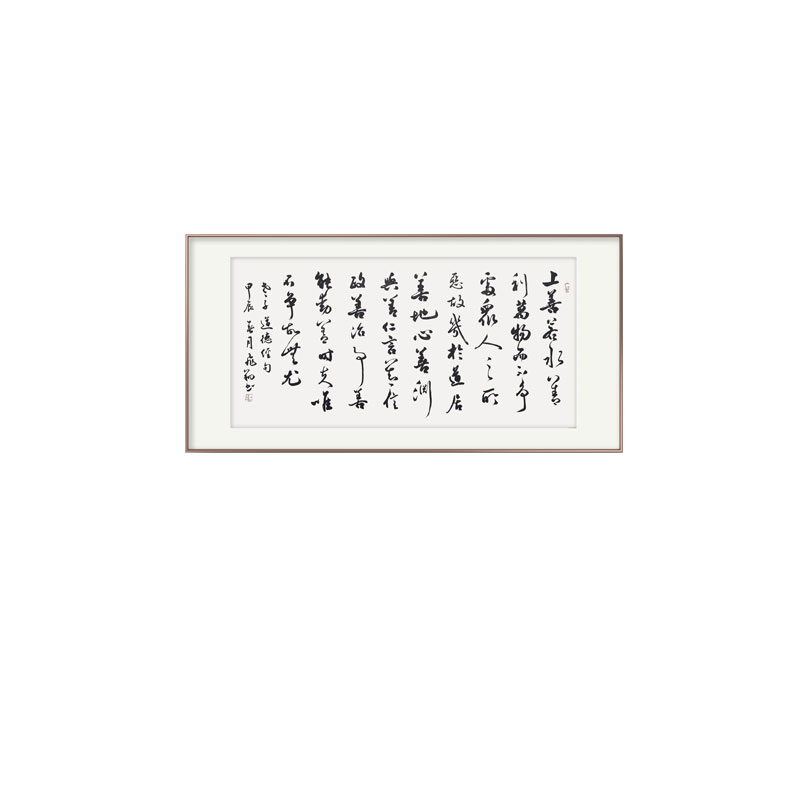 上善若水水善
利萬物而不爭
處眾人之所
惡故幾於道居
善地心善淵
與善仁言善信
政善治事善
能動善時夫唯
不爭故無尤
老子道德經句
甲辰夏月飛翔書